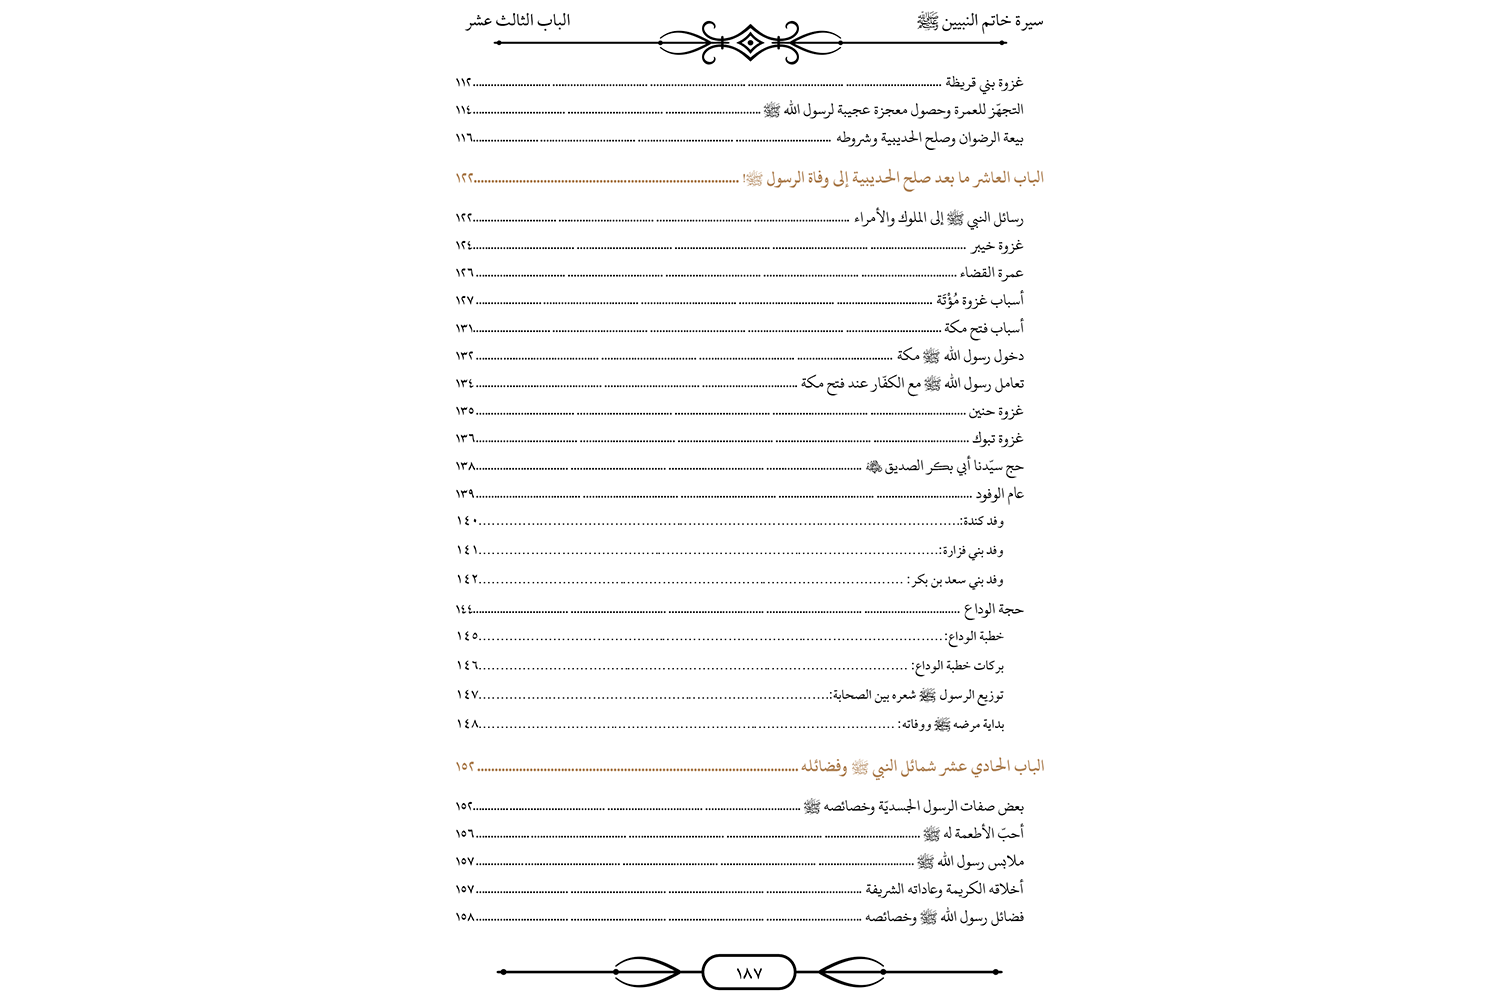 سيرة خاتم النبيين ﷺ الباب الثالث عشر
غزوة بني قريظة ........ ١١٢
التجهّز للعمرة وحصول معجزة عجيبة لرسول الله ﷺ ........ ١١٤
بيعة الرضوان وصلح الحديبية وشروطه ........ ١١٦
الباب العاشر ما بعد صلح الحديبية إلى وفاة الرسول ﷺ! ........ ١٢٢
رسائل النبي ﷺ إلى الملوك والأمراء ........ ١٢٢
غزوة خيبر ........ ١٢٤
عمرة القضاء ........ ١٢٦
أسباب غزوة مُؤْتَة ........ ١٢٧
أسباب فتح مكة ........ ١٣١
دخول رسول الله ﷺ مكة ........ ١٣٢
تعامل رسول الله ﷺ مع الكفّار عند فتح مكة ........ ١٣٤
غزوة حنين ........ ١٣٥
غزوة تبوك ........ ١٣٦
حج سيّدنا أبي بكر الصديق ........ ١٣٨
عام الوفود ........ ١٣٩
وفد كندة: ........ ١٤٠
وفد بني فزارة: ........ ١٤١
وفد بني سعد بن بكر: ........ ١٤٢
حجة الوداع ........ ١٤٤
خطبة الوداع: ........ ١٤٥
بركات خطبة الوداع: ........ ١٤٦
توزيع الرسول ﷺ شعره بين الصحابة: ........ ١٤٧
بداية مرضه ﷺ ووفاته: ........ ١٤٨
الباب الحادي عشر شمائل النبي ﷺ وفضائله ........ ١٥٢
بعض صفات الرسول الجسديّة وخصائصه ﷺ ........ ١٥٢
أحبّ الأطعمة له ﷺ ........ ١٥٦
ملابس رسول الله ﷺ ........ ١٥٧
أخلاقه الكريمة وعاداته الشريفة ........ ١٥٧
فضائل رسول الله ﷺ وخصائصه ........ ١٥٨
١٨٧